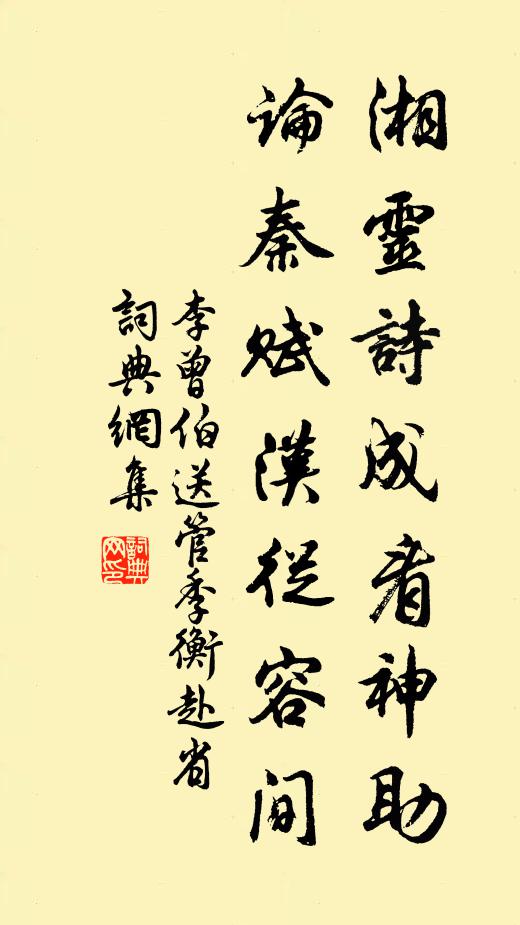 湘靈詩成看神助
論秦賦漢從容間
李曾伯送管季衡赴省
詞典網集
詞典網印